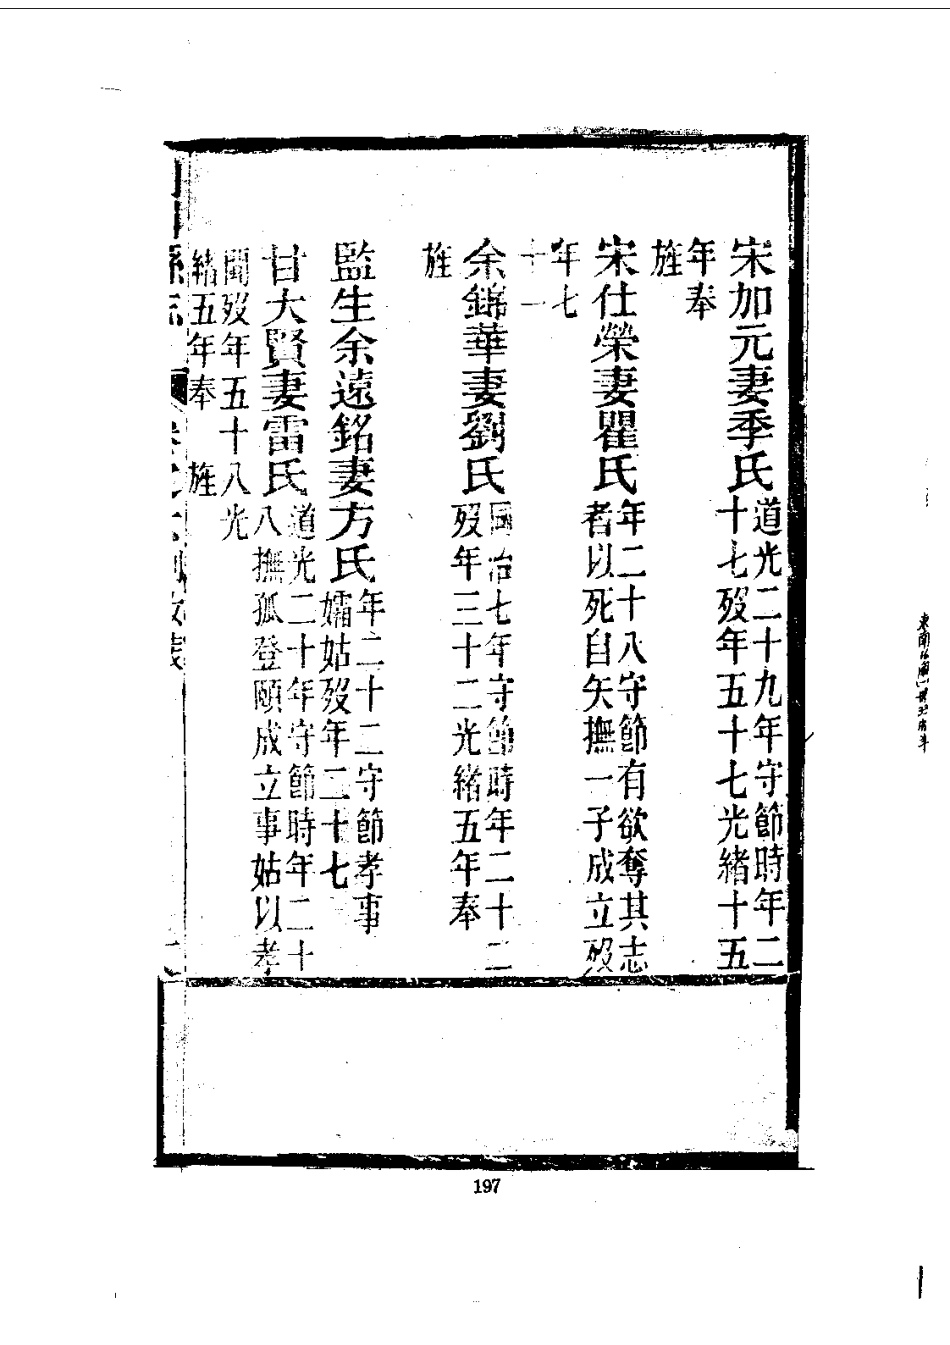 宋加元妻季氏道光二十九年守節時年二
十七歿年五十七光緒十五
年奉
旌
宋仕榮妻瞿氏年二十八守節有欲奪其志
者以死自矢撫一子成立歿
年七
十一
余錦華妻劉氏同治七年守節時年二十二
歿年三十二光緒五年奉
旌
監生余遠銘妻方氏年二十二守節孝事
孀姑歿年二十七
甘大賢妻雷氏道光二十年守節時年二十
八撫孤登頤成立事姑以孝
聞歿年五十八光
緒五年奉 旌
197